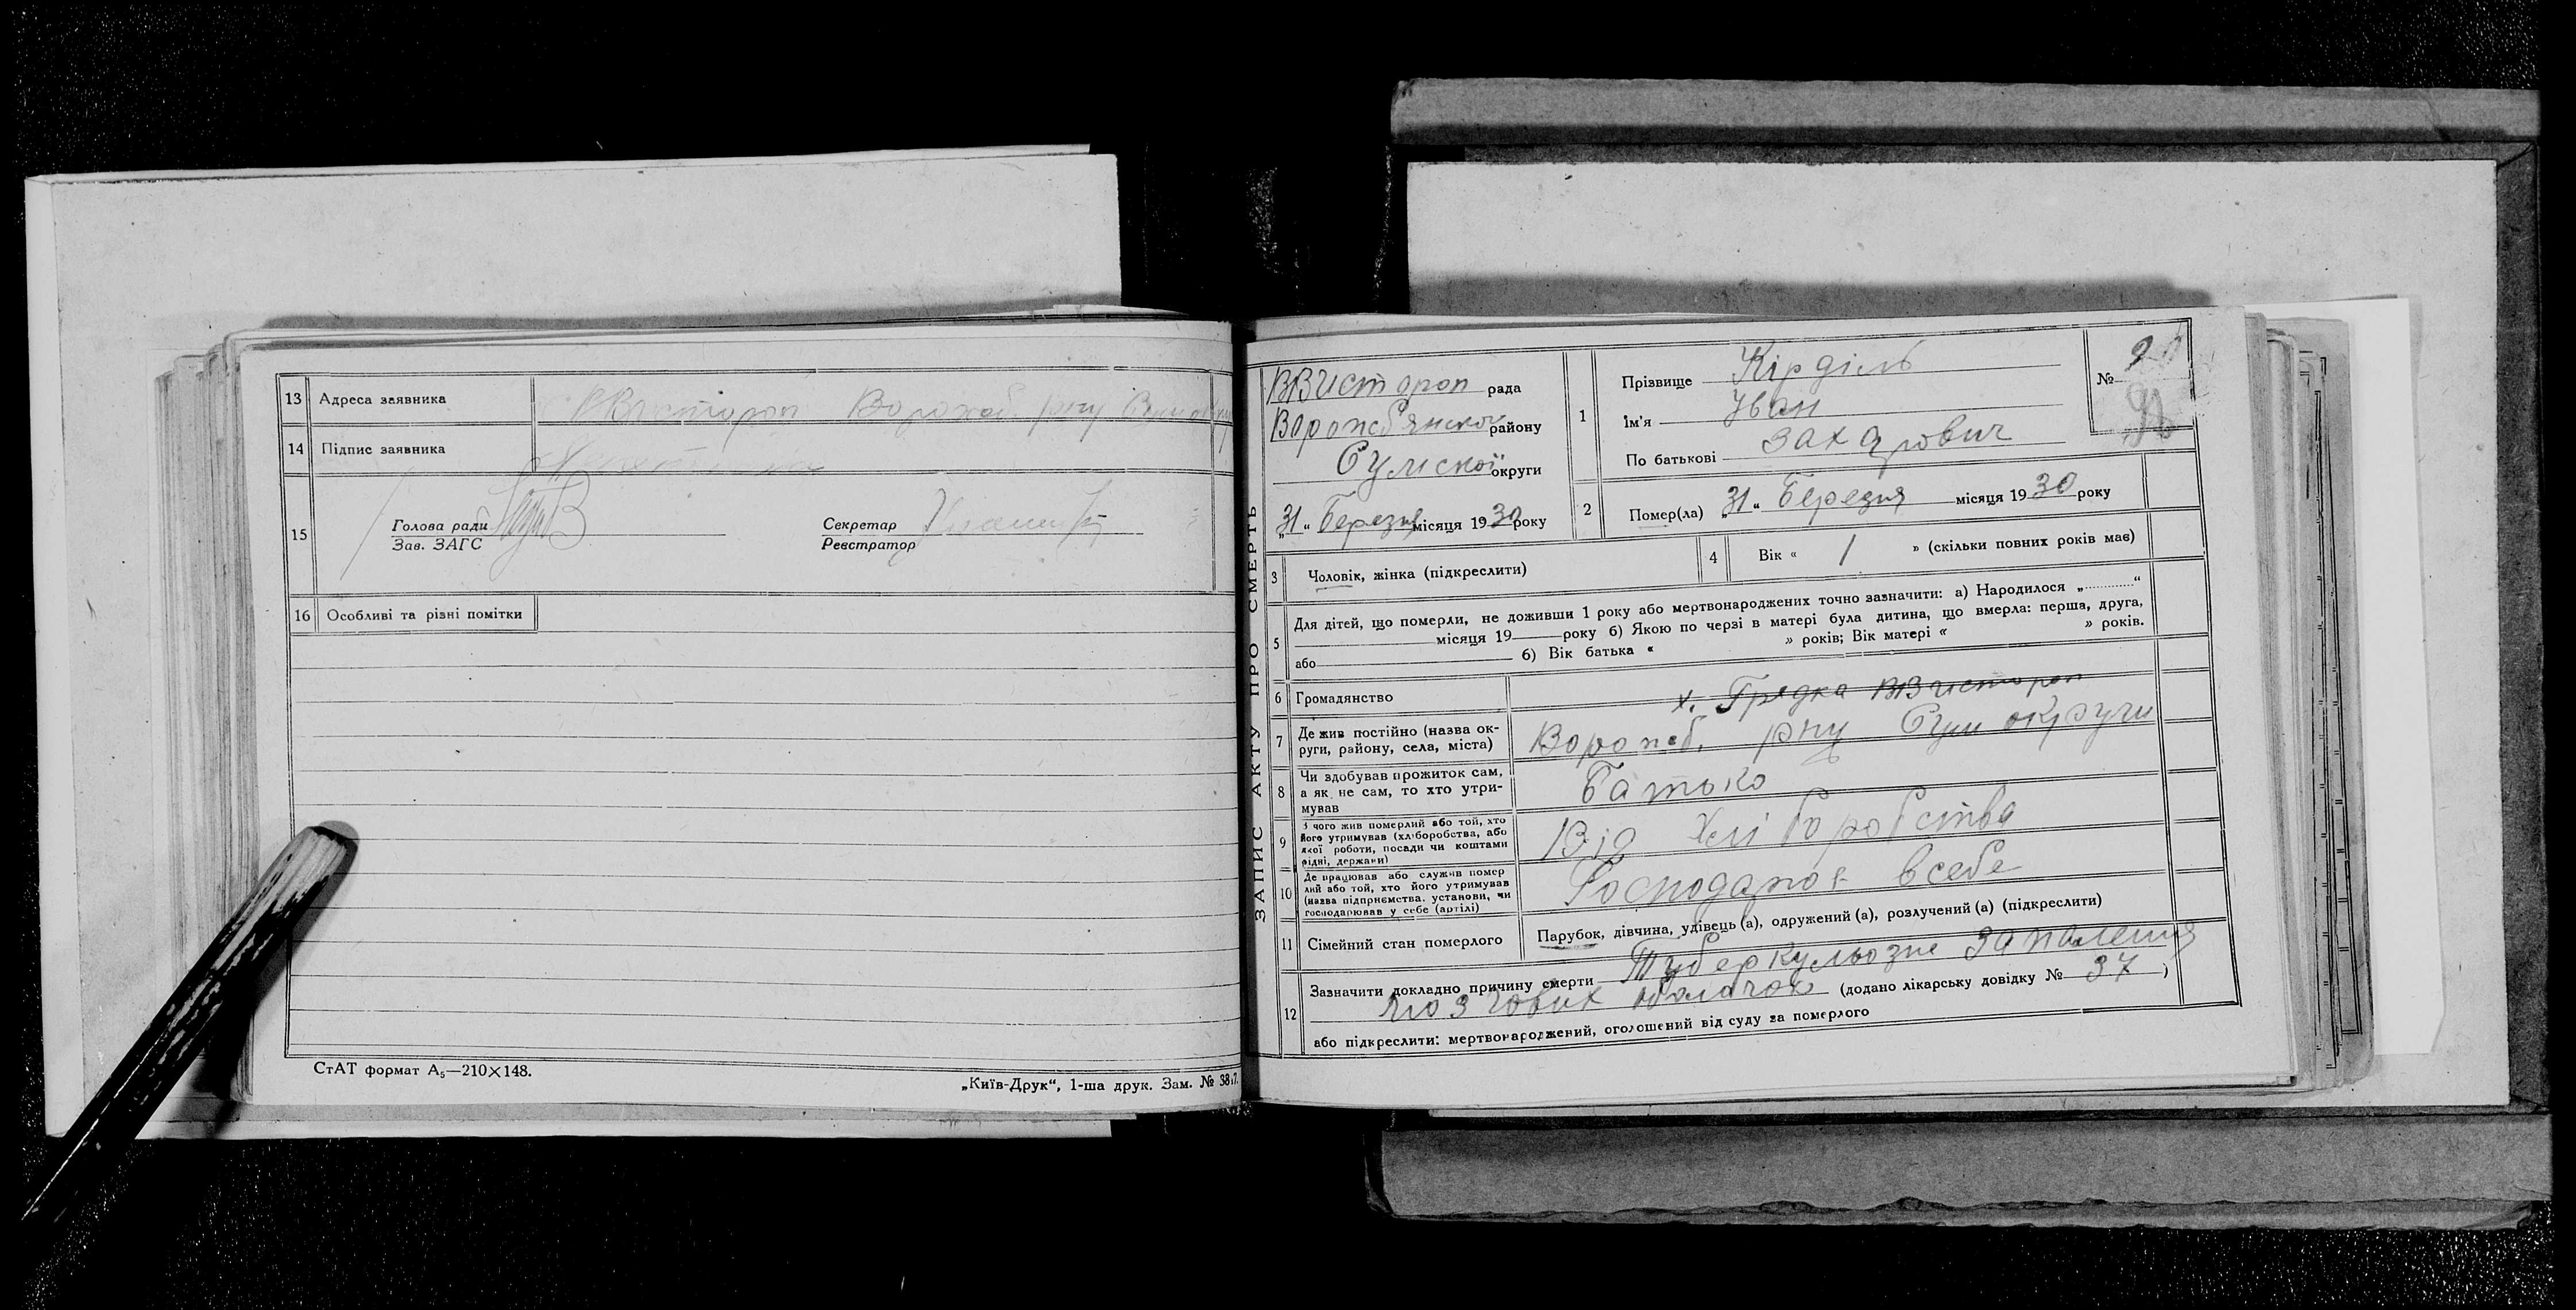 13 Адреса заявника
14 Підпис заявника
15 Голова ради Секретар
Зав. ЗАГС Реєстратор
16 Особливі та різні помітки
СтАТ формат А5—210×148.
„Київ-Друк“, 1-ша друк. Зам. №
ЗАПИС АКТУ ПРО СМЕРТЬ
ВВистороп рада
Ворожбянског району
Сумської округи
„31“ Березня місяця 1930 року
1 Прізвище Кірділь
Ім'я Іван
По батькові Захарович
№ 9
2 Помер(ла) „31“ Березня місяця 1930 року
3 Чоловік, жінка (підкреслити)
4 Вік « 1 » (скільки повних років має)
5 Для дітей, що померли, не доживши 1 року або мертвонароджених точно зазначити: а) Народилося „ “
місяця 19 року б) Якою по черзі в матері була дитина, що вмерла: перша, друга,
або б) Вік батька « » років; Вік матері « » років.
6 Громадянство
х. Грядка ВВистороп
7 Де жив постійно (назва ок-
руги, району, села, міста)
Ворожб. рну Сум округи
8 Чи здобував прожиток сам,
а як не сам, то хто утри-
мував
Батько
9 З чого жив померлий або той, хто
його утримував (хліборобства, або
якої роботи, посади чи коштами
рідні, держави)
Від Хліборобства
10 Де працював або служив помер
лий або той, хто його утримував
(назва підприємства, установи, чи
господарював у себе (артілі)
Господарює в себе
11 Сімейний стан померлого
Парубок, дівчина, удівець (а), одружений (а), розлучений (а) (підкреслити)
12 Зазначити докладно причину смерти Туберкульозне запалення
мозгових оболочок (додано лікарську довідку № 37 )
або підкреслити: мертвонароджений, оголошений від суду за померлого